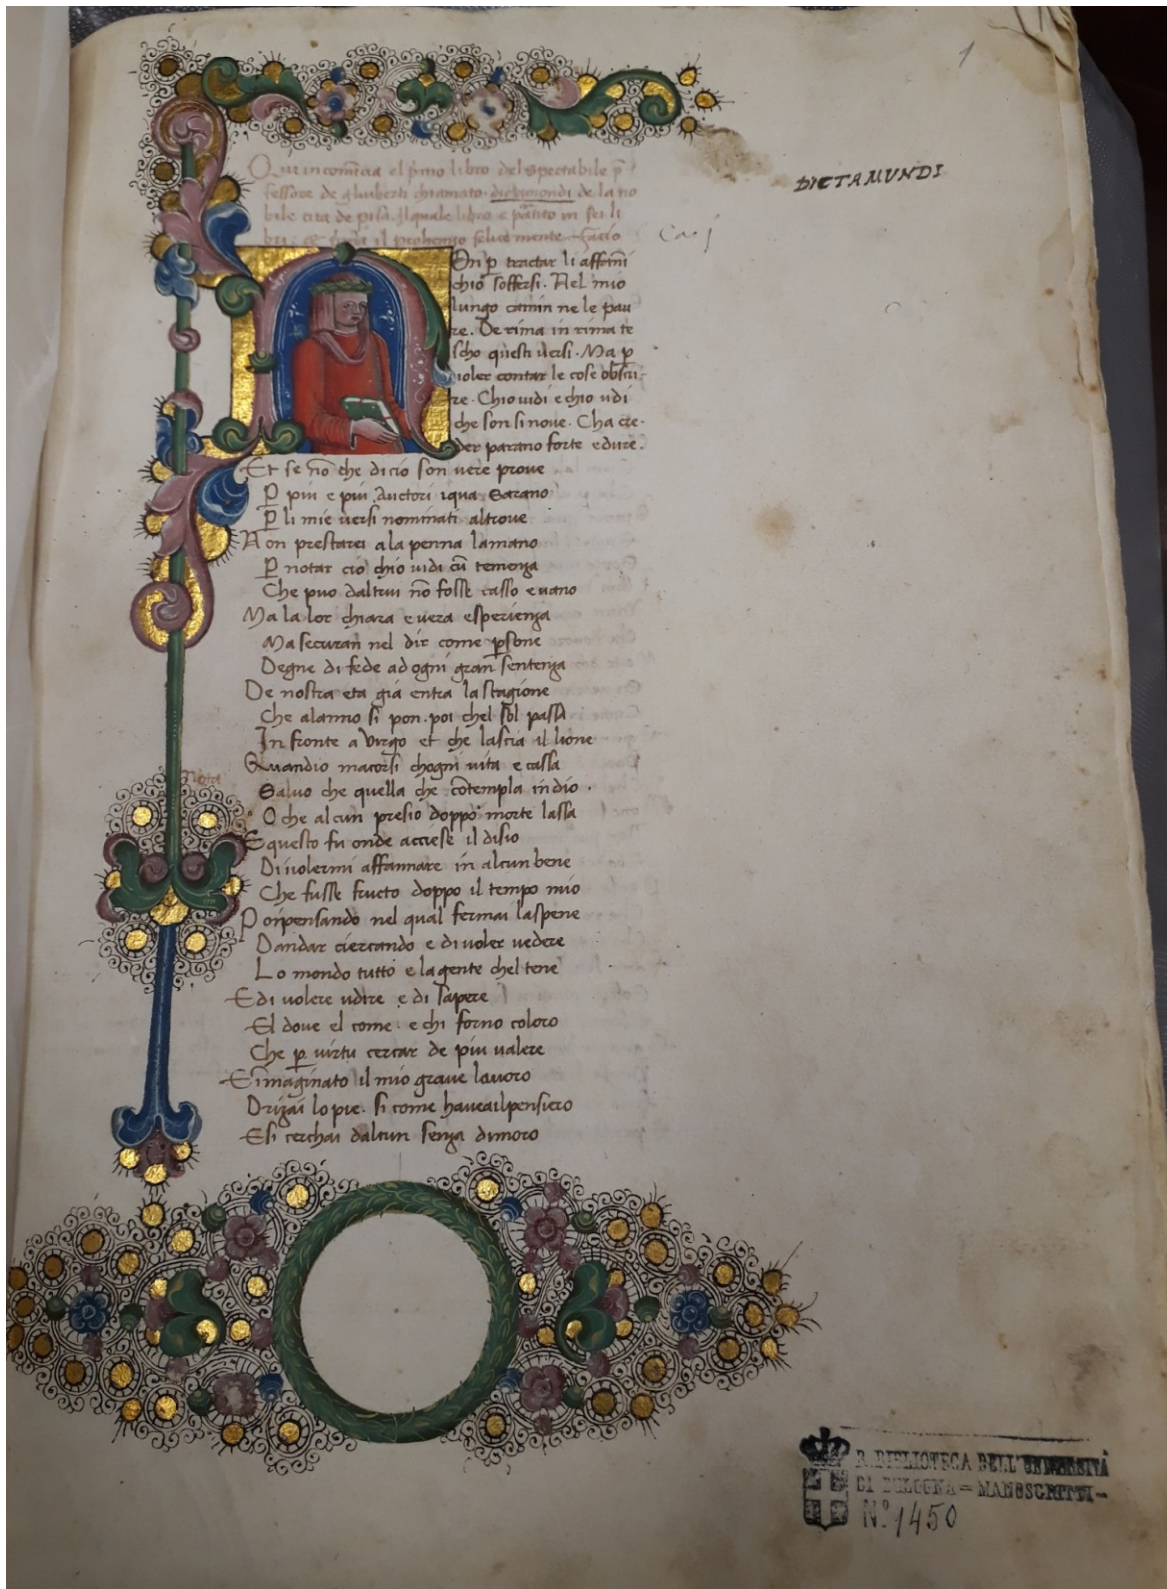 1
DICTAMUNDI
Qui incomīcia el p̄mo libro del spectabile p̄
fessore de gluiberti chiamato dictamondi de la no
bile cita de pisa. Il quale libro e p̄tito in sei li
bri: il prohemio felicemente
Ca. j
On p̲ tractar li affanni
chio soffersi. Nel mio
lungo camin ne le pau
re. De rima in rima te
scho questi versi. Ma p̲
uoler contar le cose obscu
re. Chio uidi e chio udi
che son si nove. Cha cre
der parano forte e dure.
Et se nō che di cio son vere prove
P̲ piu e piu Auctori iqua sarano
P̲ li mie versi nominati altrove
Non prestarei a la penna lamano
P̲ notar cio chio uidi cū temenza
Che puo daltrui nō fosse casso e uano
Ma la lor chiara e vera esperienza
Ma securan nel dir come p̲sone
Degne di fede ad ogni gran sentenza
De nostra eta gia entra la stagione
Che alanno si pon. poi chel sol passa
In fronte a Virgo et che lascia il lione
Quandio macorsi chogni vita e cassa
Salvo che quella che cōtempla in dio.
O che alcun presio doppo morte lassa
E questo fu onde acciese il disio
Di uolermi affannare in alcun bene
Che fusse fructo doppo il tempo mio
Poi pensando nel qual fermai laspene
Dandar ciercando e di voler vedere
Lo mondo tutto e la gente chel tene
E di uolere udire e di sapere
El dove el come. e chi forno coloro
Che p̲ virtu cercar de piu valere
E imaginato il mio grave lavoro
Drizai lo pie. si come haveailpensiero
E si cerchai dalcun senza dimoro
R. BIBLIOTECA DELL'UNIVERSITÀ
DI BOLOGNA = MANOSCRITTI -
N.º 1450